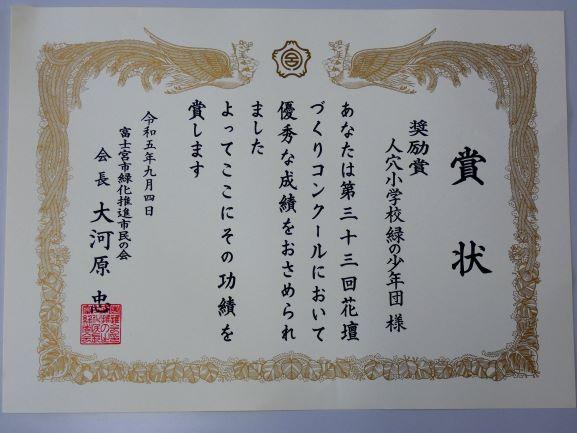 賞状
奨励賞
人穴小学校緑の少年団 様
あなたは第三十三回花壇
づくりコンクールにおいて
優秀な成績をおさめられ
ました
よってここにその功績を
賞します
令和五年九月四日
富士宮市緑化推進市民の会
会長 大河原 忠